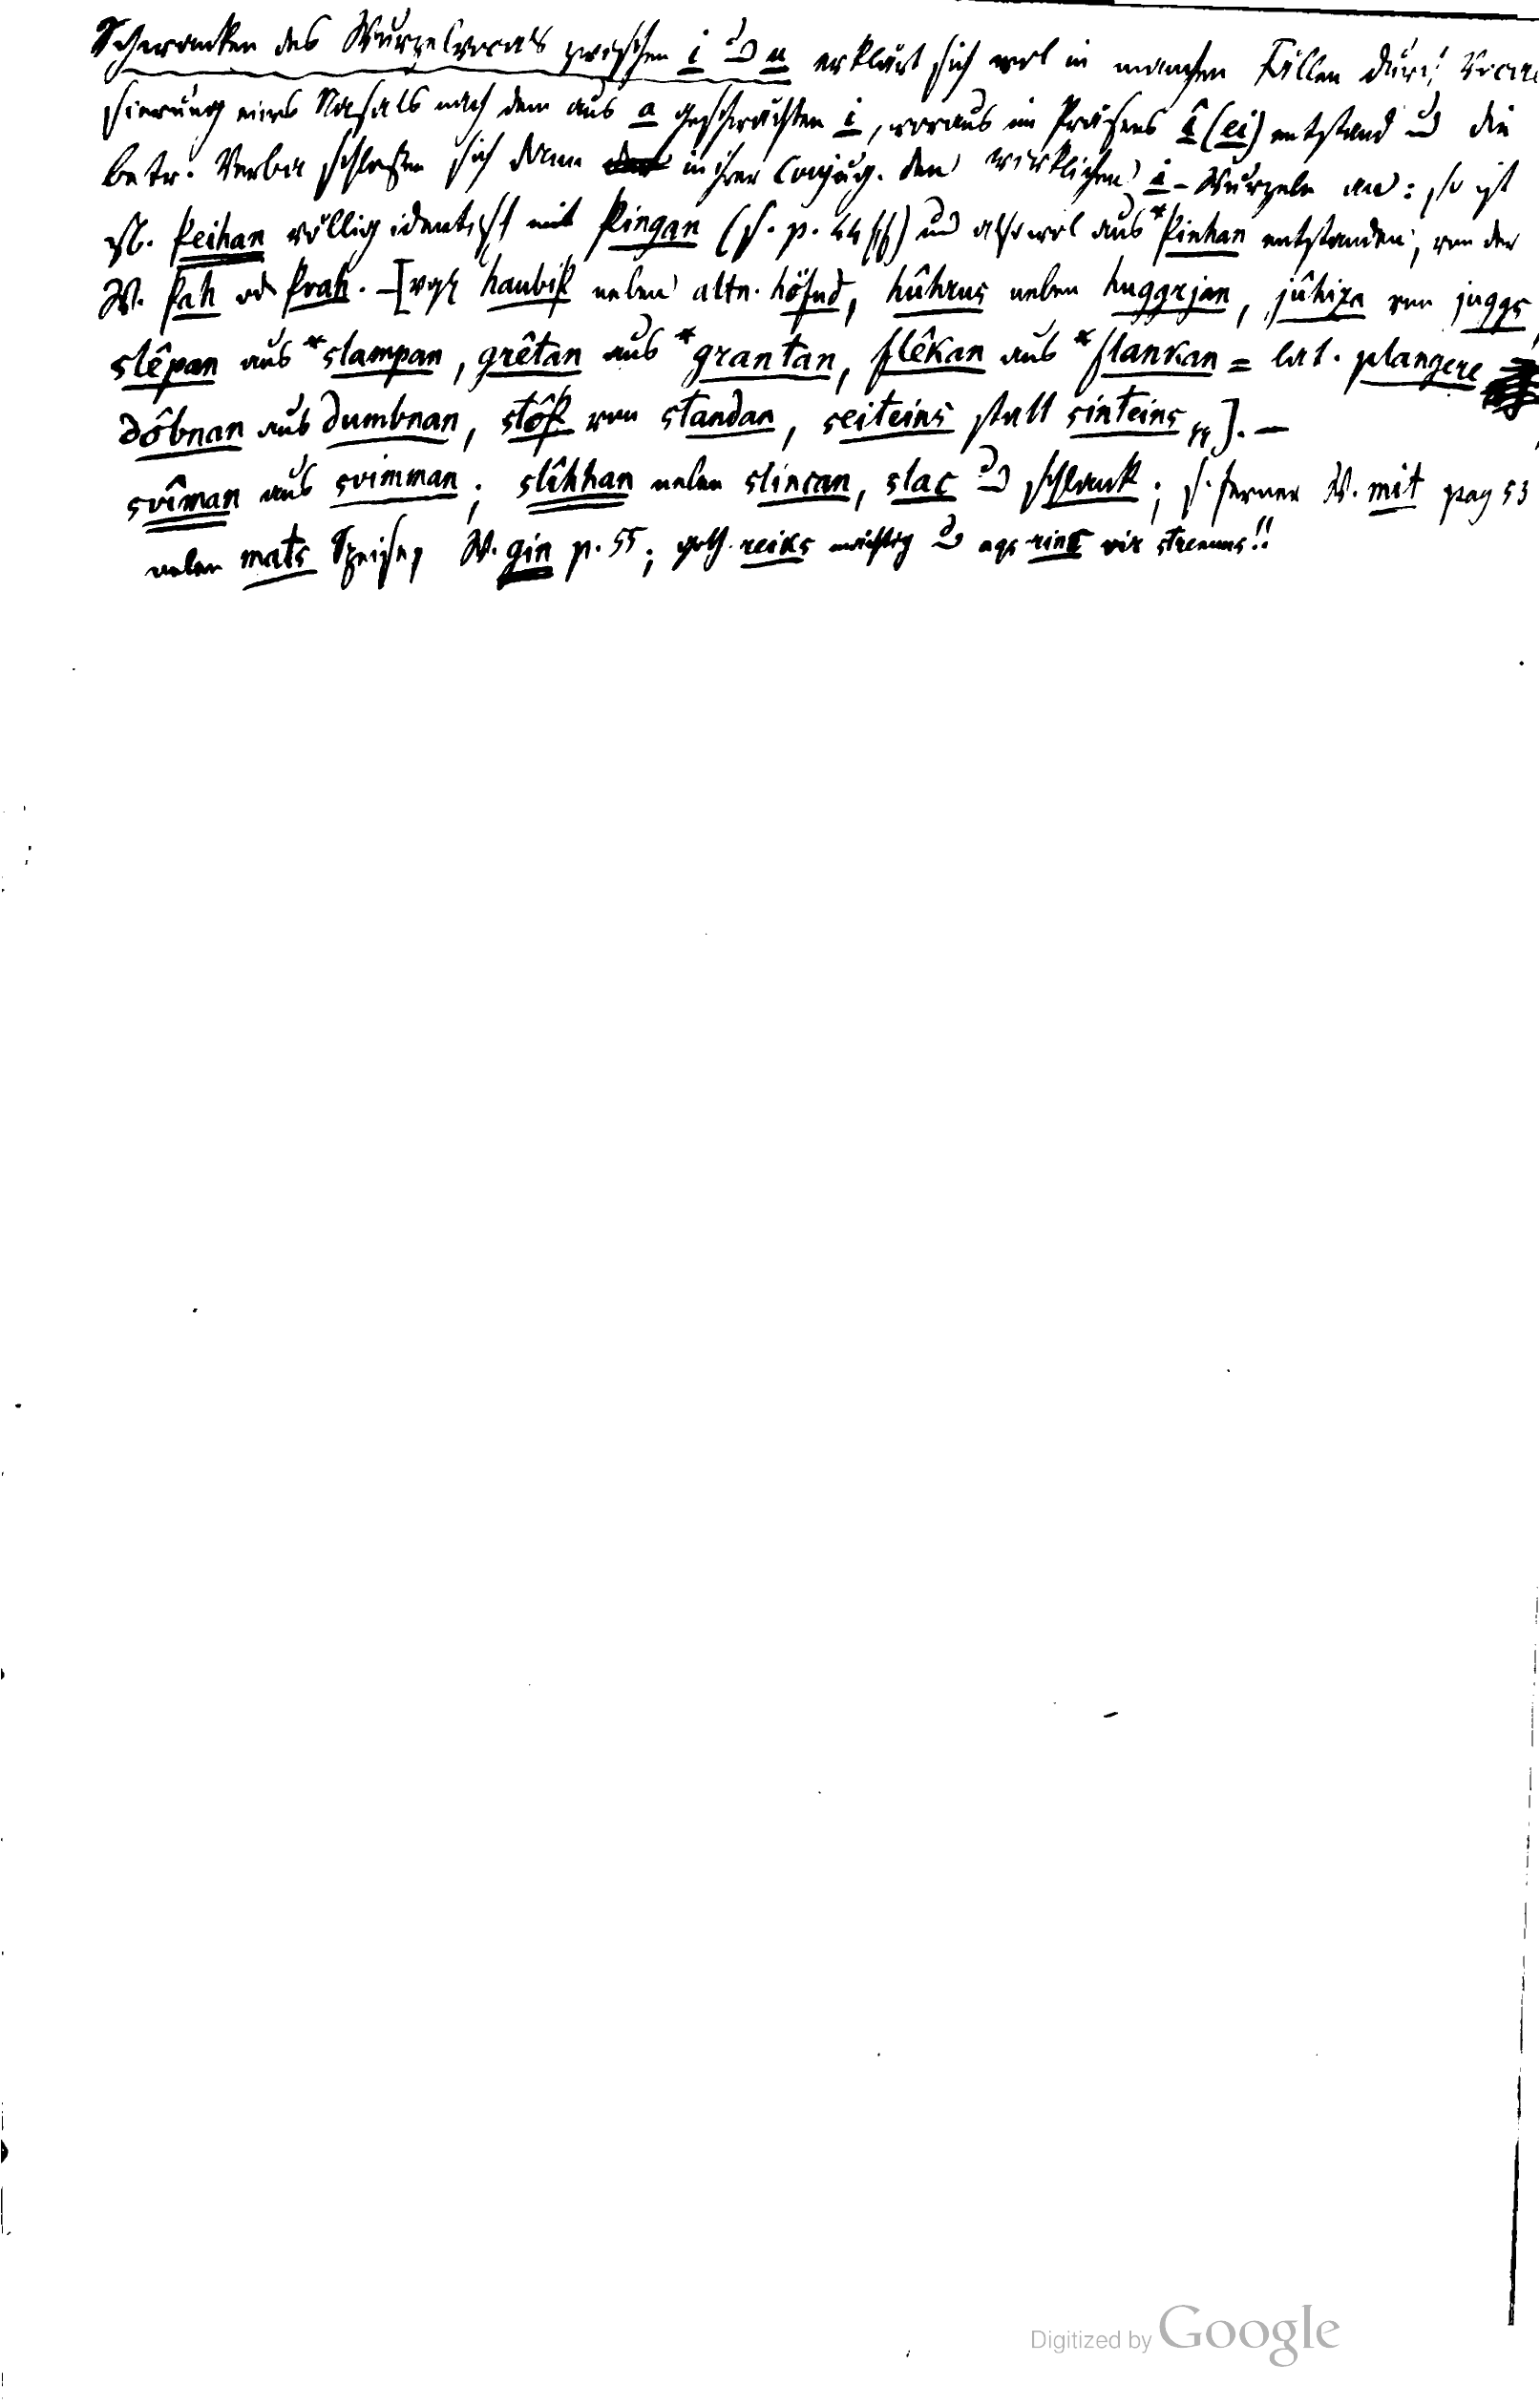 Schwanken des Wurzelvocals zwischen i u a erklärt sich wol in manchen Fällen durch Vocali
sierung eines Nasals nach dem aus a geschwächten i, woraus im Präsens î (ei) entstand u die
betr. Verba schloßen sich dann in ihrer Conjug. den wirklichen i-Wurzeln an: so ist
zB. þeihan völlig identisch mit þingan (s. p. 44) u also wol aus *þinhan entstanden, von der
W. þah od þrah. – [vgl haubiþ neben altn. höfud, hûhrus neben huggrjan, jûhiza von juggs,
slêpan aus *slampan, grêtan aus *grantan, flêkan aus *flankan = lat. plangere
dôbnan aus dumbnan, stôþ von standan, seiteins statt sinteins]. –
svîman aus svimman; slîhhan neben slincan, slac u schlank; s. ferner W. mit pag 53
neben mats Speise, W. gin p. 55; goth. reiks mächtig u ags rinc vir strenuus!!
Digitized by Google